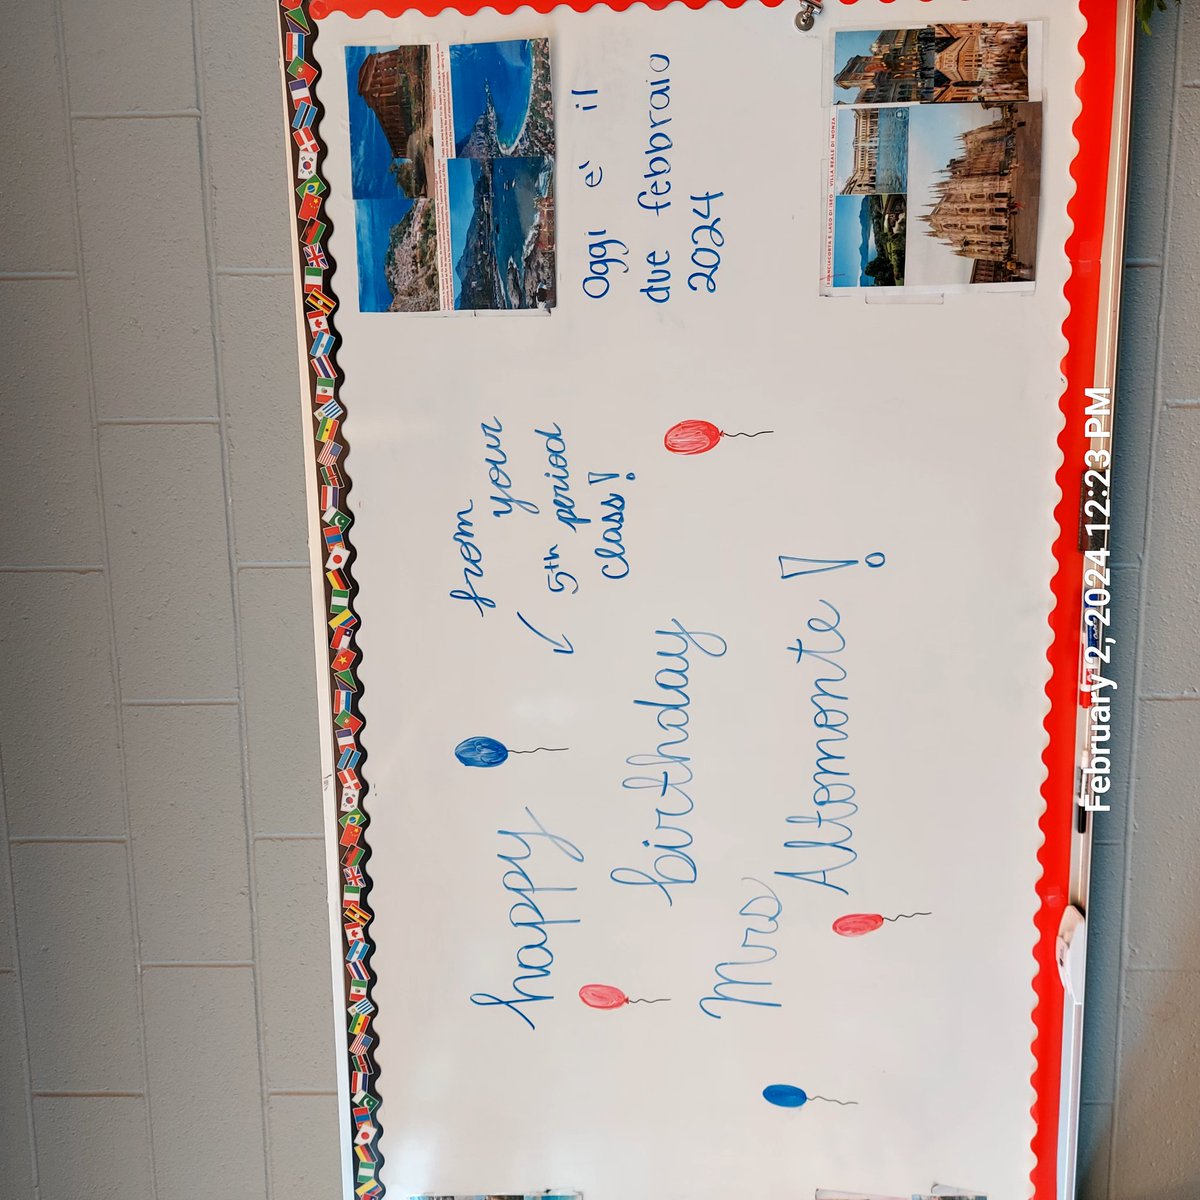 Oggi è il
due febbraio
2024
from
your
5th period
class!
happy
birthday
Mrs
Altomonte!
FRANCIACORTA E LAGO DI ISEO
VILLA REALE DI MONZA
February 2, 2024 12:23 PM